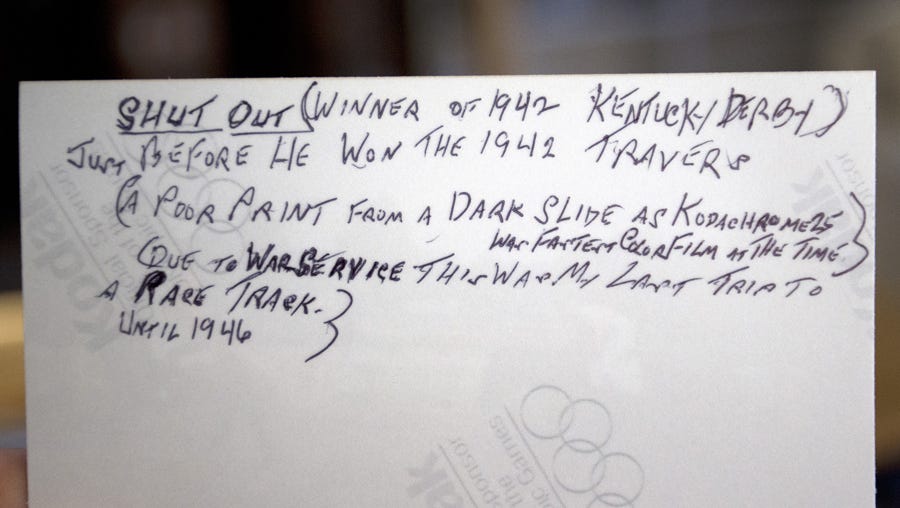 SHUT OUT (WINNER OF 1942 KENTUCKY DERBY)
JUST BEFORE HE WON THE 1942 TRAVERS
(A POOR PRINT FROM A DARK SLIDE AS KODACHROME 25
WAS FASTEST COLOR FILM AT THE TIME.)
(DUE TO WAR SERVICE THIS WAS MY LAST TRIP TO
A RACE TRACK.
UNTIL 1946)
Kodak
Sponsor
Kodak
Sponsor
the
Games